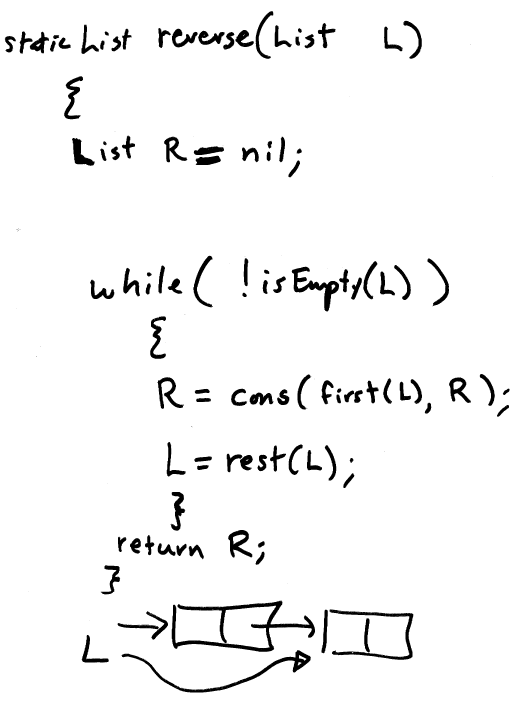 static List reverse(List L)
{
List R = nil;
while( !isEmpty(L) )
{
R = cons( first(L), R );
L = rest(L);
}
return R;
}
L